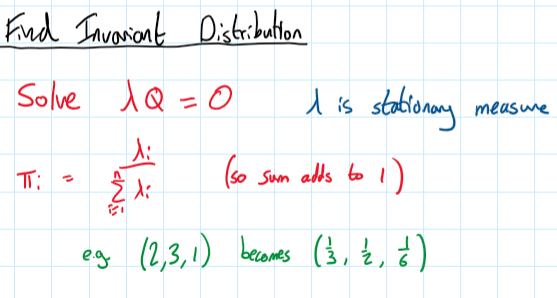 Find Invariant Distribution
Solve λQ = 0 λ is stationary measure
πi = λi / Σ_{i=1}^{n} λi (so sum adds to 1)
e.g. (2,3,1) becomes (1/3, 1/2, 1/6)